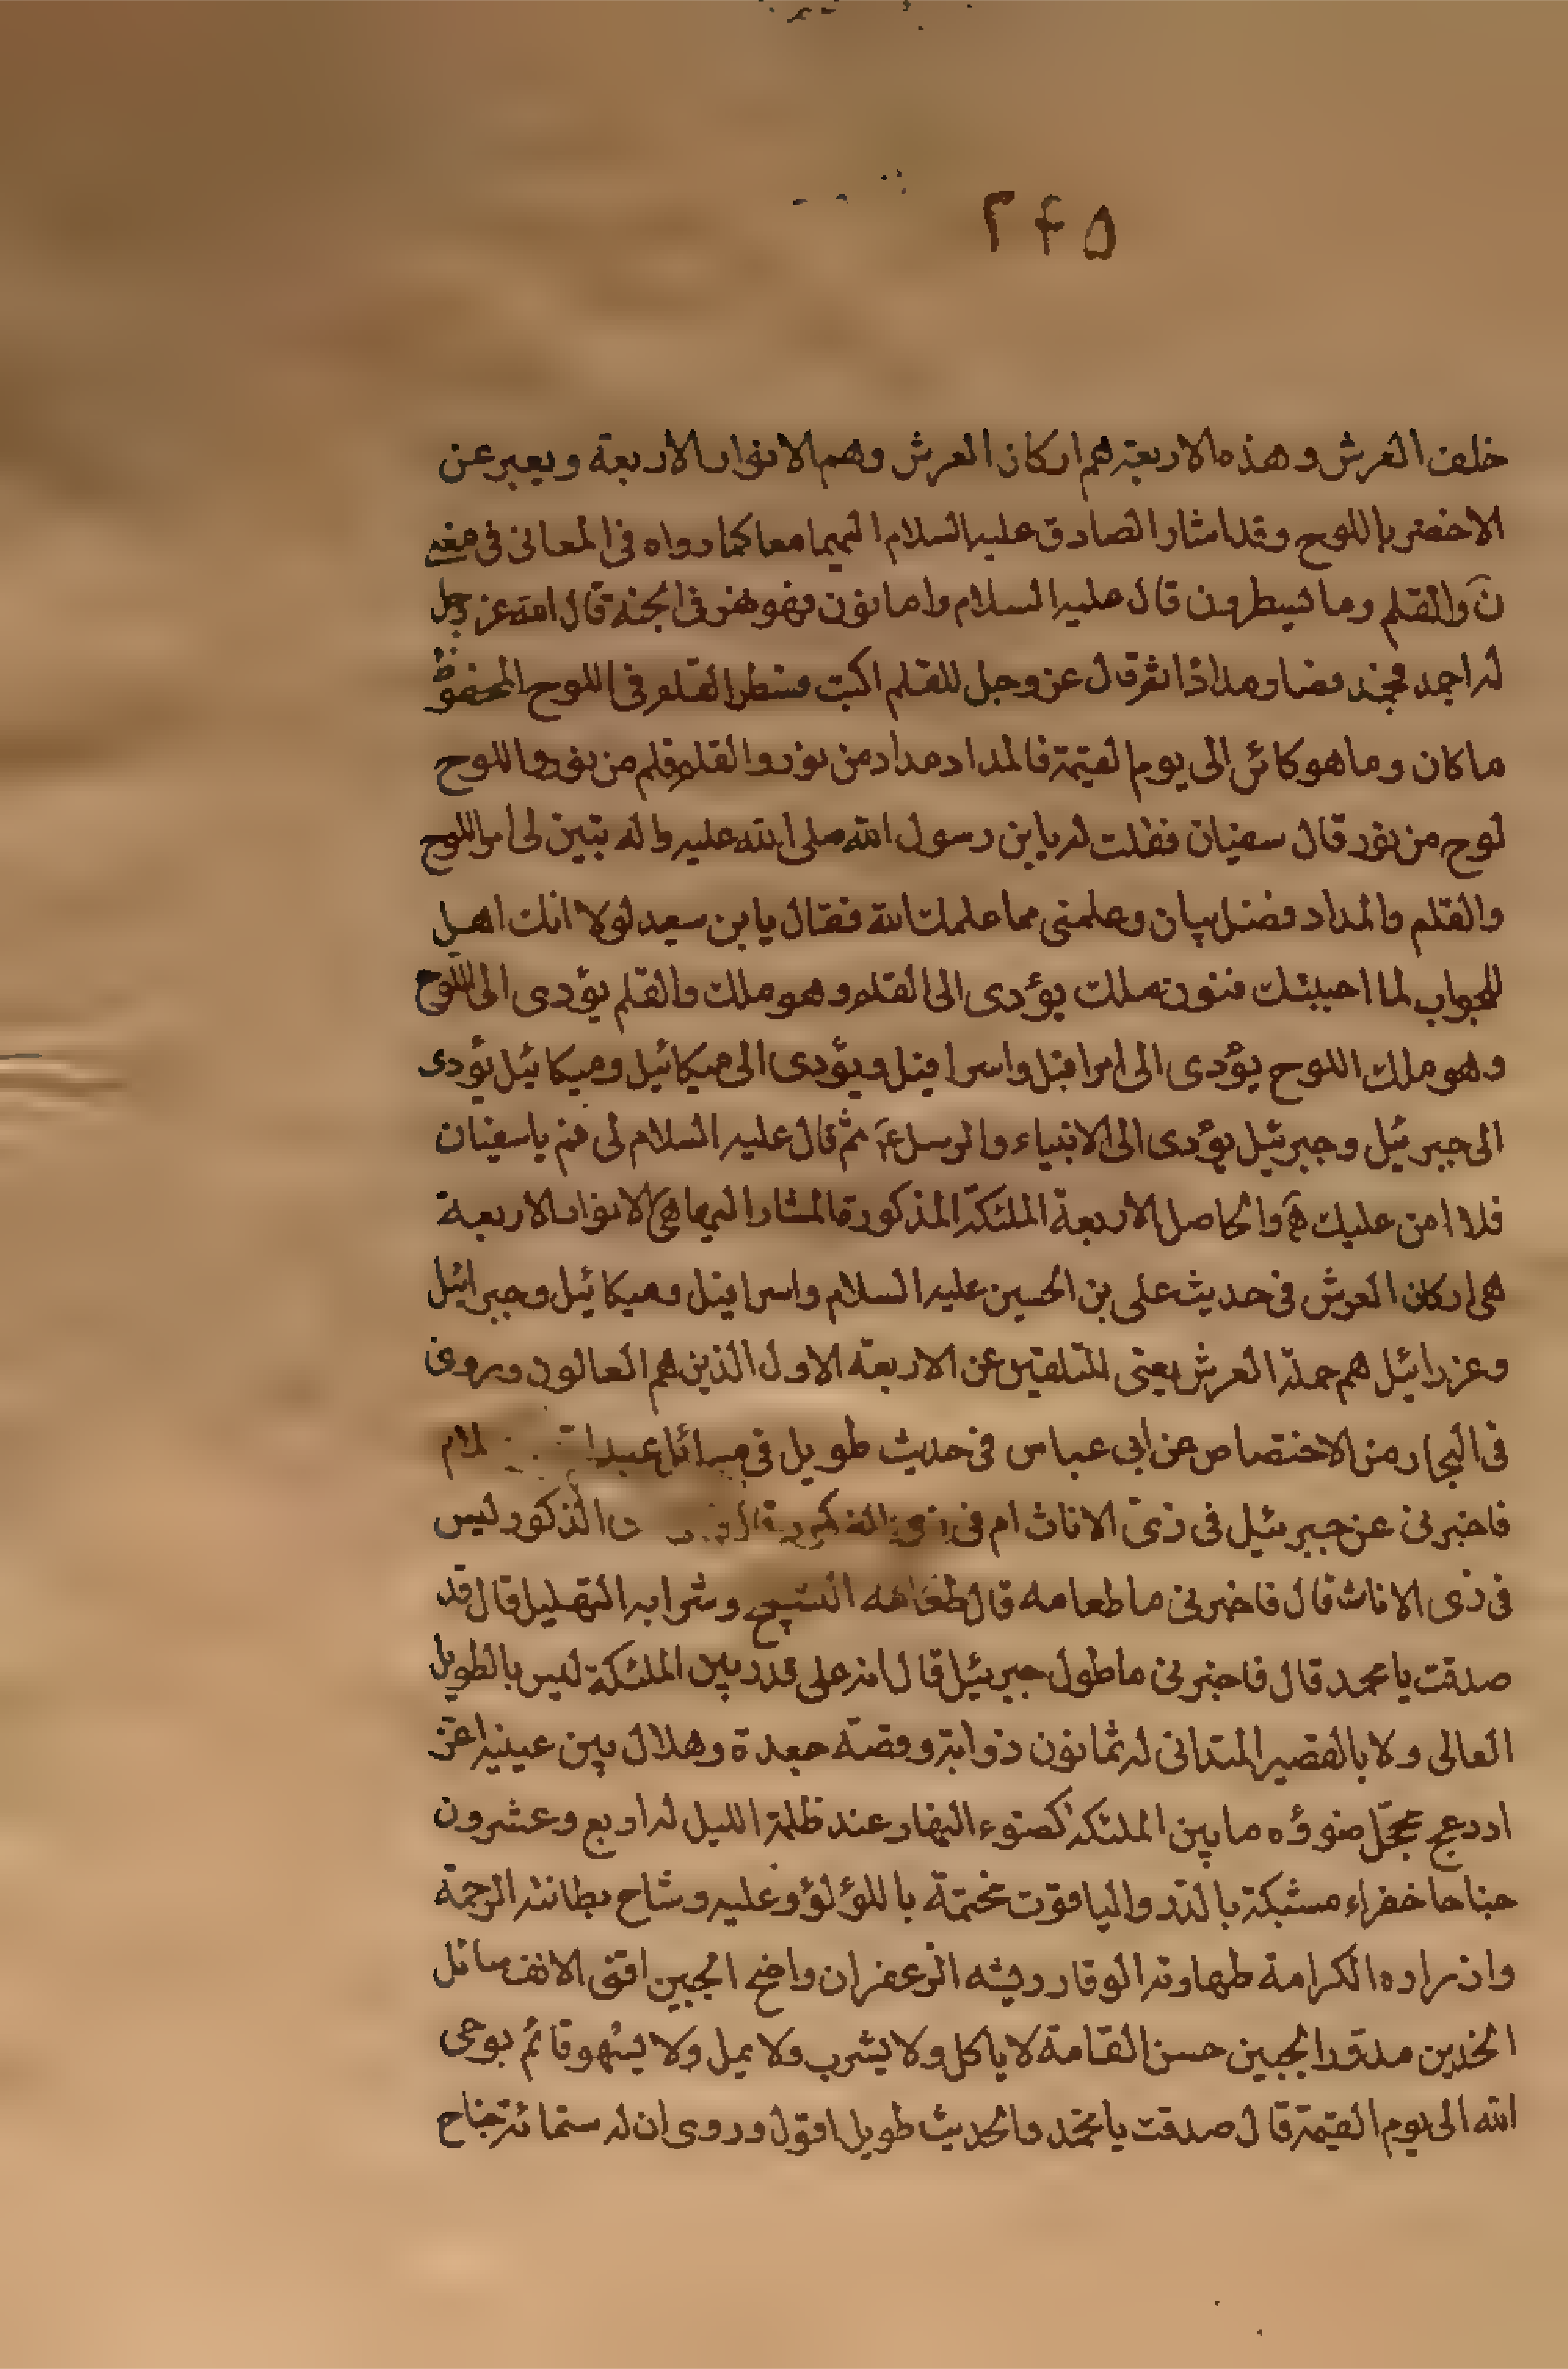 ٢٤٥
خلف العرش وهذه الاربعة هم اركان العرش وهم الانوار الاربعة ويعبر عن
الاخضر باللوح وقد اشار الصادق عليه السلام اليهما معا كما رواه فى المعانى فى معنى
نۤ والقلم وما يسطرون قال عليه السلام واما نون فهو نهر فى الجنة قال الله عز وجل
له اجمد فجمد فصار مدادا ثم قال عز وجل للقلم اكتب فسطر القلم فى اللوح المحفوظ
ما كان وما هو كائن الى يوم القيمة فالمداد مداد من نور والقلم قلم من نور واللوح
لوح من نور قال سفيان فقلت له يابن رسول الله صلى الله عليه واله بين لى امر اللوح
والقلم والمداد فضل بيان وعلمنى مما علمك الله فقال يابن سعيد لولا انك اهل
للجواب لما اجبتك فنون ملك يؤدى الى القلم وهو ملك والقلم يؤدى الى اللوح
وهو ملك اللوح يؤدى الى اسرافيل واسرافيل ويؤدى الى ميكائيل وميكائيل يؤدى
الى جبرئيل وجبرئيل يؤدى الى الانبياء والرسل ع ثم قال عليه السلام لى قم ياسفيان
فلا امن عليك هۤ والحاصل الاربعة الملئكة المذكورة المشار اليها هى الانوار الاربعة
هى اركان العرش فى حديث على بن الحسين عليه السلام واسرافيل وميكائيل وجبرائيل
وعزرائيل هم حملة العرش يعنى المتلقين عن الاربعة الاول الذين هم العالون وروى
فى البحار من الاختصاص عن ابى عباس فى حديث طويل فى مسائل عبد لام
فاخبرنى عن جبرئيل فى زىّ الاناث ام فى زى الذكور قال الذكور ليس
فى زى الاناث قال فاخبرنى ما طعامه قال طعامه التسبيح وشرابه التهليل قال قد
صدقت يا محمد قال فاخبرنى ما طول جبرئيل قال انه على قدر بين الملئكة ليس بالطويل
العالى ولا بالقصير المتدانى له ثمانون ذوابة وقصة جعدة وهلال بين عينيه اغرّ
ادعج محجّل ضوؤه ما بين الملئكة كضوء النهار عند ظلمة الليل له اربع وعشرون
جناحا خضراء مشبكة بالدّر والياقوت مختمة باللؤلؤ وعليه وشاح بطانته الرحمة
وازراره الكرامة ظهارته الوقار ريشه الزعفران واضح الجبين اقنى الانف سائل
الخدين مدوّر الجبين حسن القامة لا ياكل ولا يشرب ولا يمل ولا يسهو قائم بوحى
الله الى يوم القيمة قال صدقت يا محمّد والحديث طويل اقول وروى ان له ستمائة جناح